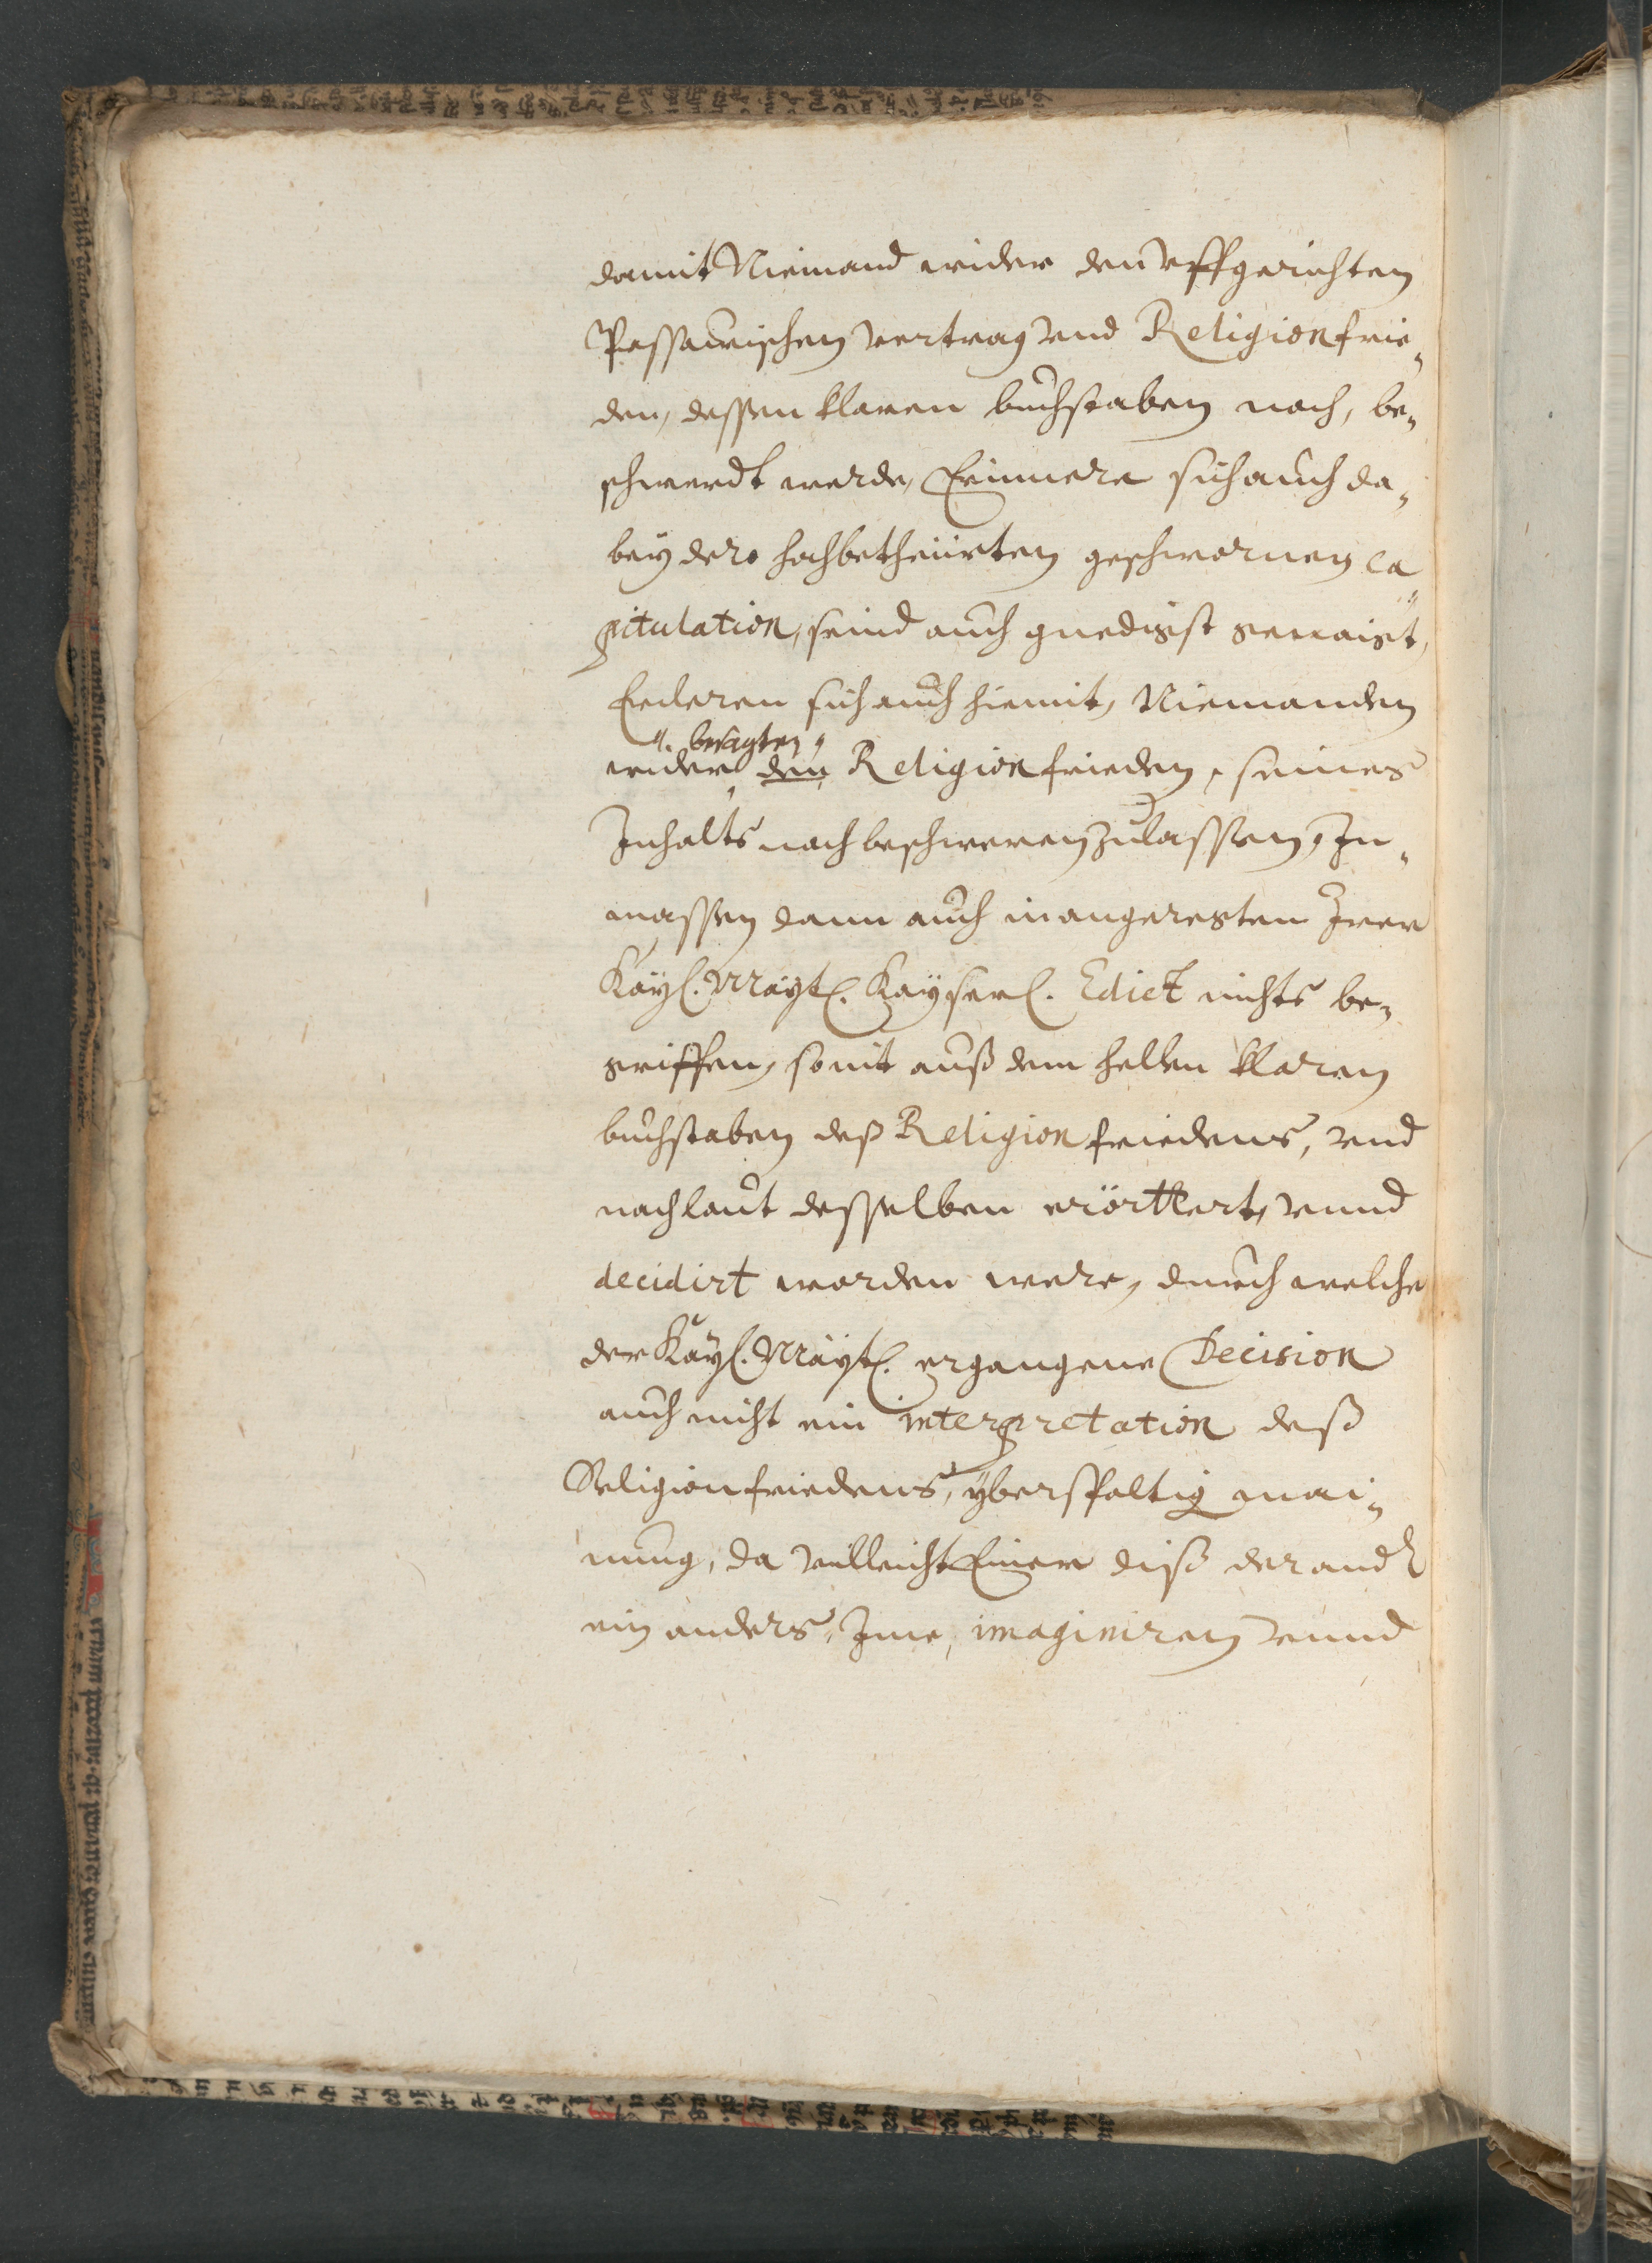 damit Niemand wider den vffgerichten
Passawischen vertrag vnd Religionfrie¬
den, dessen klaren buchstaben nach, be¬
schwerdt werde, Erinnere sich auch da¬
bey dero hochbetheürten geschwornen ca¬
pitulation, seind auch gnedigst genaigt,
Erkleren sich auch hiemit, Niemanden
besagten
wider den Religionfrieden, seines
Inhalts nach beschweren zulassen, In¬
massen dann auch in angeregtem Irer
Kayl. Mayt. Kayserl. Edict nichts be¬
griffen, so nit auß dem hellen klaren
buchstaben deß Religionfriedens, vnd
nach laut desselben erörttert, vnnd
decidirt worden were, durch welche
der Kayl. Mayt. ergangene Decision
auch nicht ein interpretation deß
Religionfriedens, yberspaltig mai¬
nung, da villeicht Einer diß der and.
ein anders, Ime, imaginiren vnnd